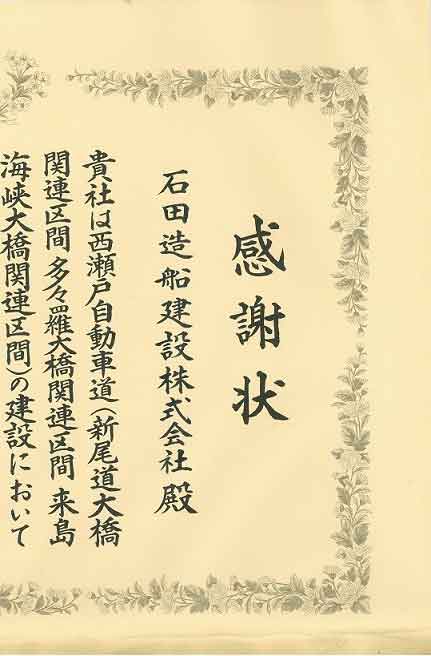 感謝状
石田造船建設株式会社 殿
貴社は西瀬戸自動車道(新尾道大橋
関連区間 多々羅大橋関連区間 来島
海峡大橋関連区間)の建設において